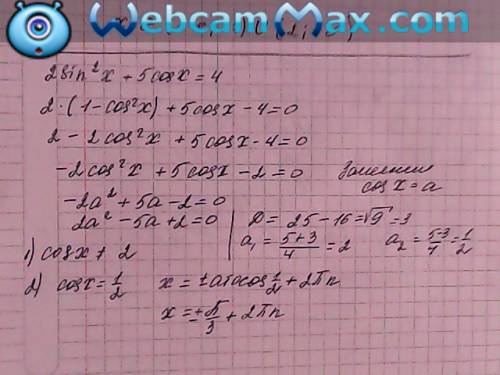 WebcamMax.com
2sin²x + 5cosx = 4
2·(1-cos²x) + 5cosx - 4 = 0
2 - 2cos²x + 5cosx - 4 = 0
-2cos²x + 5cosx - 2 = 0
Заменим
cos x = a
-2a² + 5a - 2 = 0
2a² - 5a + 2 = 0
D = 25 - 16 = √9 = 3
a₁ = (5+3)/4 = 2 a₂ = (5-3)/4 = 1/2
1) cosx ≠ 2
2) cosx = 1/2 x = ±arccos 1/2 + 2πn
x = ±π/3 + 2πn